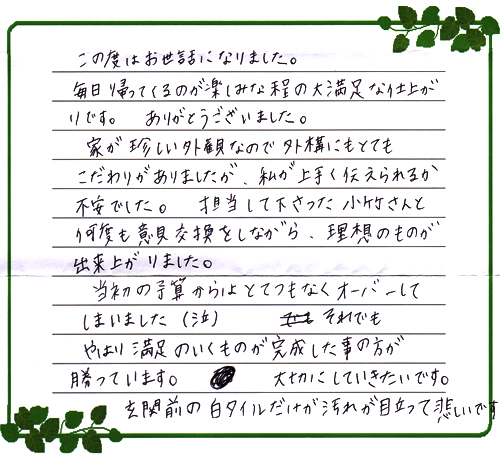 この度はお世話になりました。
毎日帰ってくるのが楽しみな程の大満足な仕上が
りです。 ありがとうございました。
家が珍しい外観なので外構にもとても
こだわりがありましたが、私が上手く伝えられるか
不安でした。 担当して下さった小竹さんと
何度も意見交換をしながら、理想のものが
出来上がりました。
当初の予算からはとてつもなくオーバーして
しまいました(泣) それでも
やはり満足のいくものが完成した事の方が
勝っています。 大切にしていきたいです。
玄関前の白タイルだけが汚れが目立って悲しいです